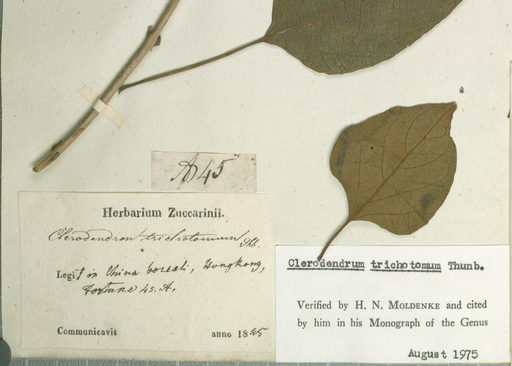 A 45
Herbarium Zuccarinii.
Clerodendron trichotomum
Legit in China boreali, Hongkong,
Fortune 45. A.
Communicavit anno 1845
Clerodendrum trichotomum Thunb.
Verified by H. N. MOLDENKE and cited
by him in his Monograph of the Genus
August 1975